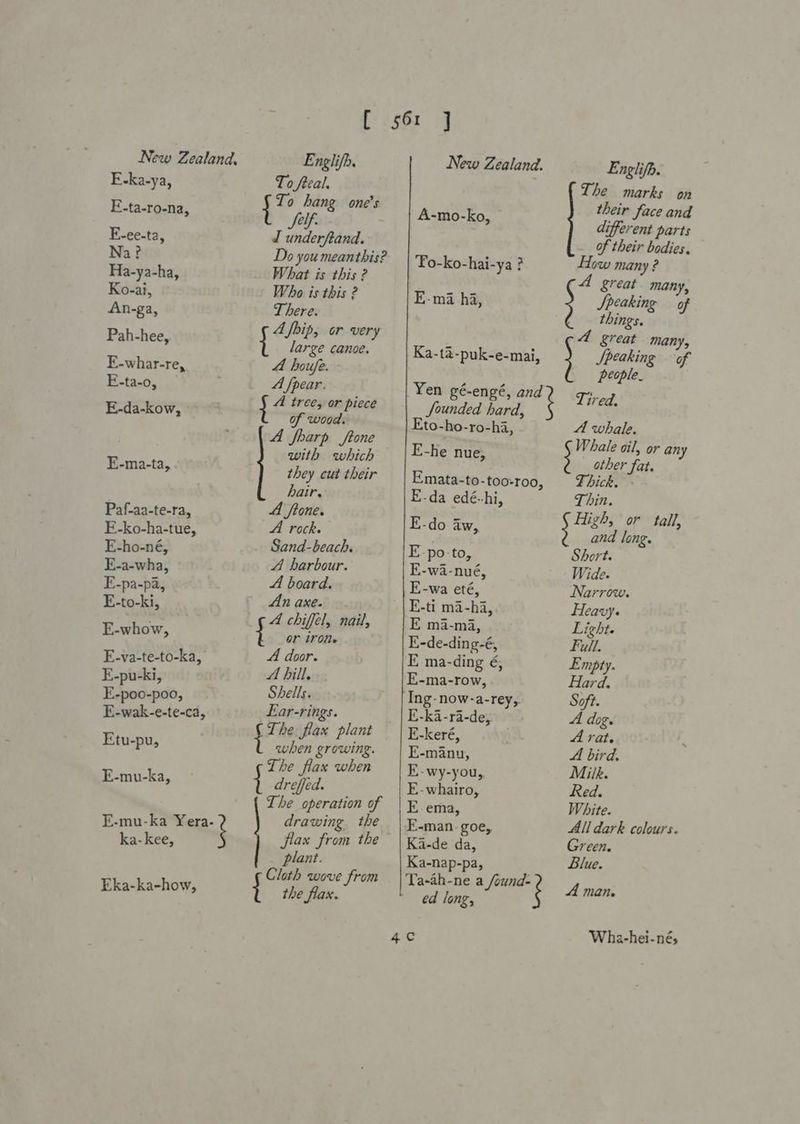 [ 561 ]
New Zealand. Engliſh.
E-ka-ya, To ſteal.
E-ta-ro-na, { To hang one's
ſelf.
E-ee-ta, I underſtand.
Na? Do you mean this?
Ha-ya-ha, What is this?
Ko-ai, Who is this?
An-ga, There.
Pah-hee, { A ſhip, or very
large canoe.
E-whar-re, A houſe.
E-ta-o, A ſpear.
E-da-kow, { A tree, or piece
of wood.
E-ma-ta, { A ſharp ſtone
with which
they cut their
hair.
Paf-aa-te-ra, A ſtone.
E-ko-ha-tue, A rock.
E-ho-né, Sand-beach.
E-a-wha, A harbour.
E-pa-pā, A board.
E-to-ki, An axe.
E-whow, { A chiſſel, nail,
or iron.
E-va-te-to-ka, A door.
E-pu-ki, A hill.
E-poo-poo, Shells.
E-wak-e-te-ca, Ear-rings.
Etu-pu, { The flax plant
when growing.
E-mu-ka, { The flax when
dreſſed.
E-mu-ka Yera-
ka-kee, } { The operation of
drawing the
flax from the
plant.
Eka-ka-how, { Cloth wove from
the flax.
New Zealand. Engliſh.
A-mo-ko, { The marks on
their face and
different parts
of their bodies.
To-ko-hai-ya? How many?
E-mā hā, { A great many,
ſpeaking of
things.
Ka-tā-puk-e-mai, { A great many,
ſpeaking of
people.
Yen gé-engé, and
ſounded hard, } Tired.
Eto-ho-ro-hā, A whale.
E-he nue, { Whale oil, or any
other fat.
Emata-to-too-roo, Thick.
E-da edé-hi, Thin.
E-do āw, { High, or tall,
and long.
E-po-to, Short.
E-wā-nué, Wide.
E-wa eté, Narrow.
E-ti mā-hā, Heavy.
E mā-mā, Light.
E-de-ding-é, Full.
E ma-ding é, Empty.
E-ma-row, Hard.
Ing-now-a-rey, Soft.
E-kā-rā-de, A dog.
E-keré, A rat.
E-mānu, A bird.
E-wy-you, Milk.
E-whairo, Red.
E ema, White.
E-man-goe, All dark colours.
Kā-de da, Green.
Ka-nap-pa, Blue.
Ta-āh-ne a ſound-
ed long, } A man.
4 C Wha-hei-né,